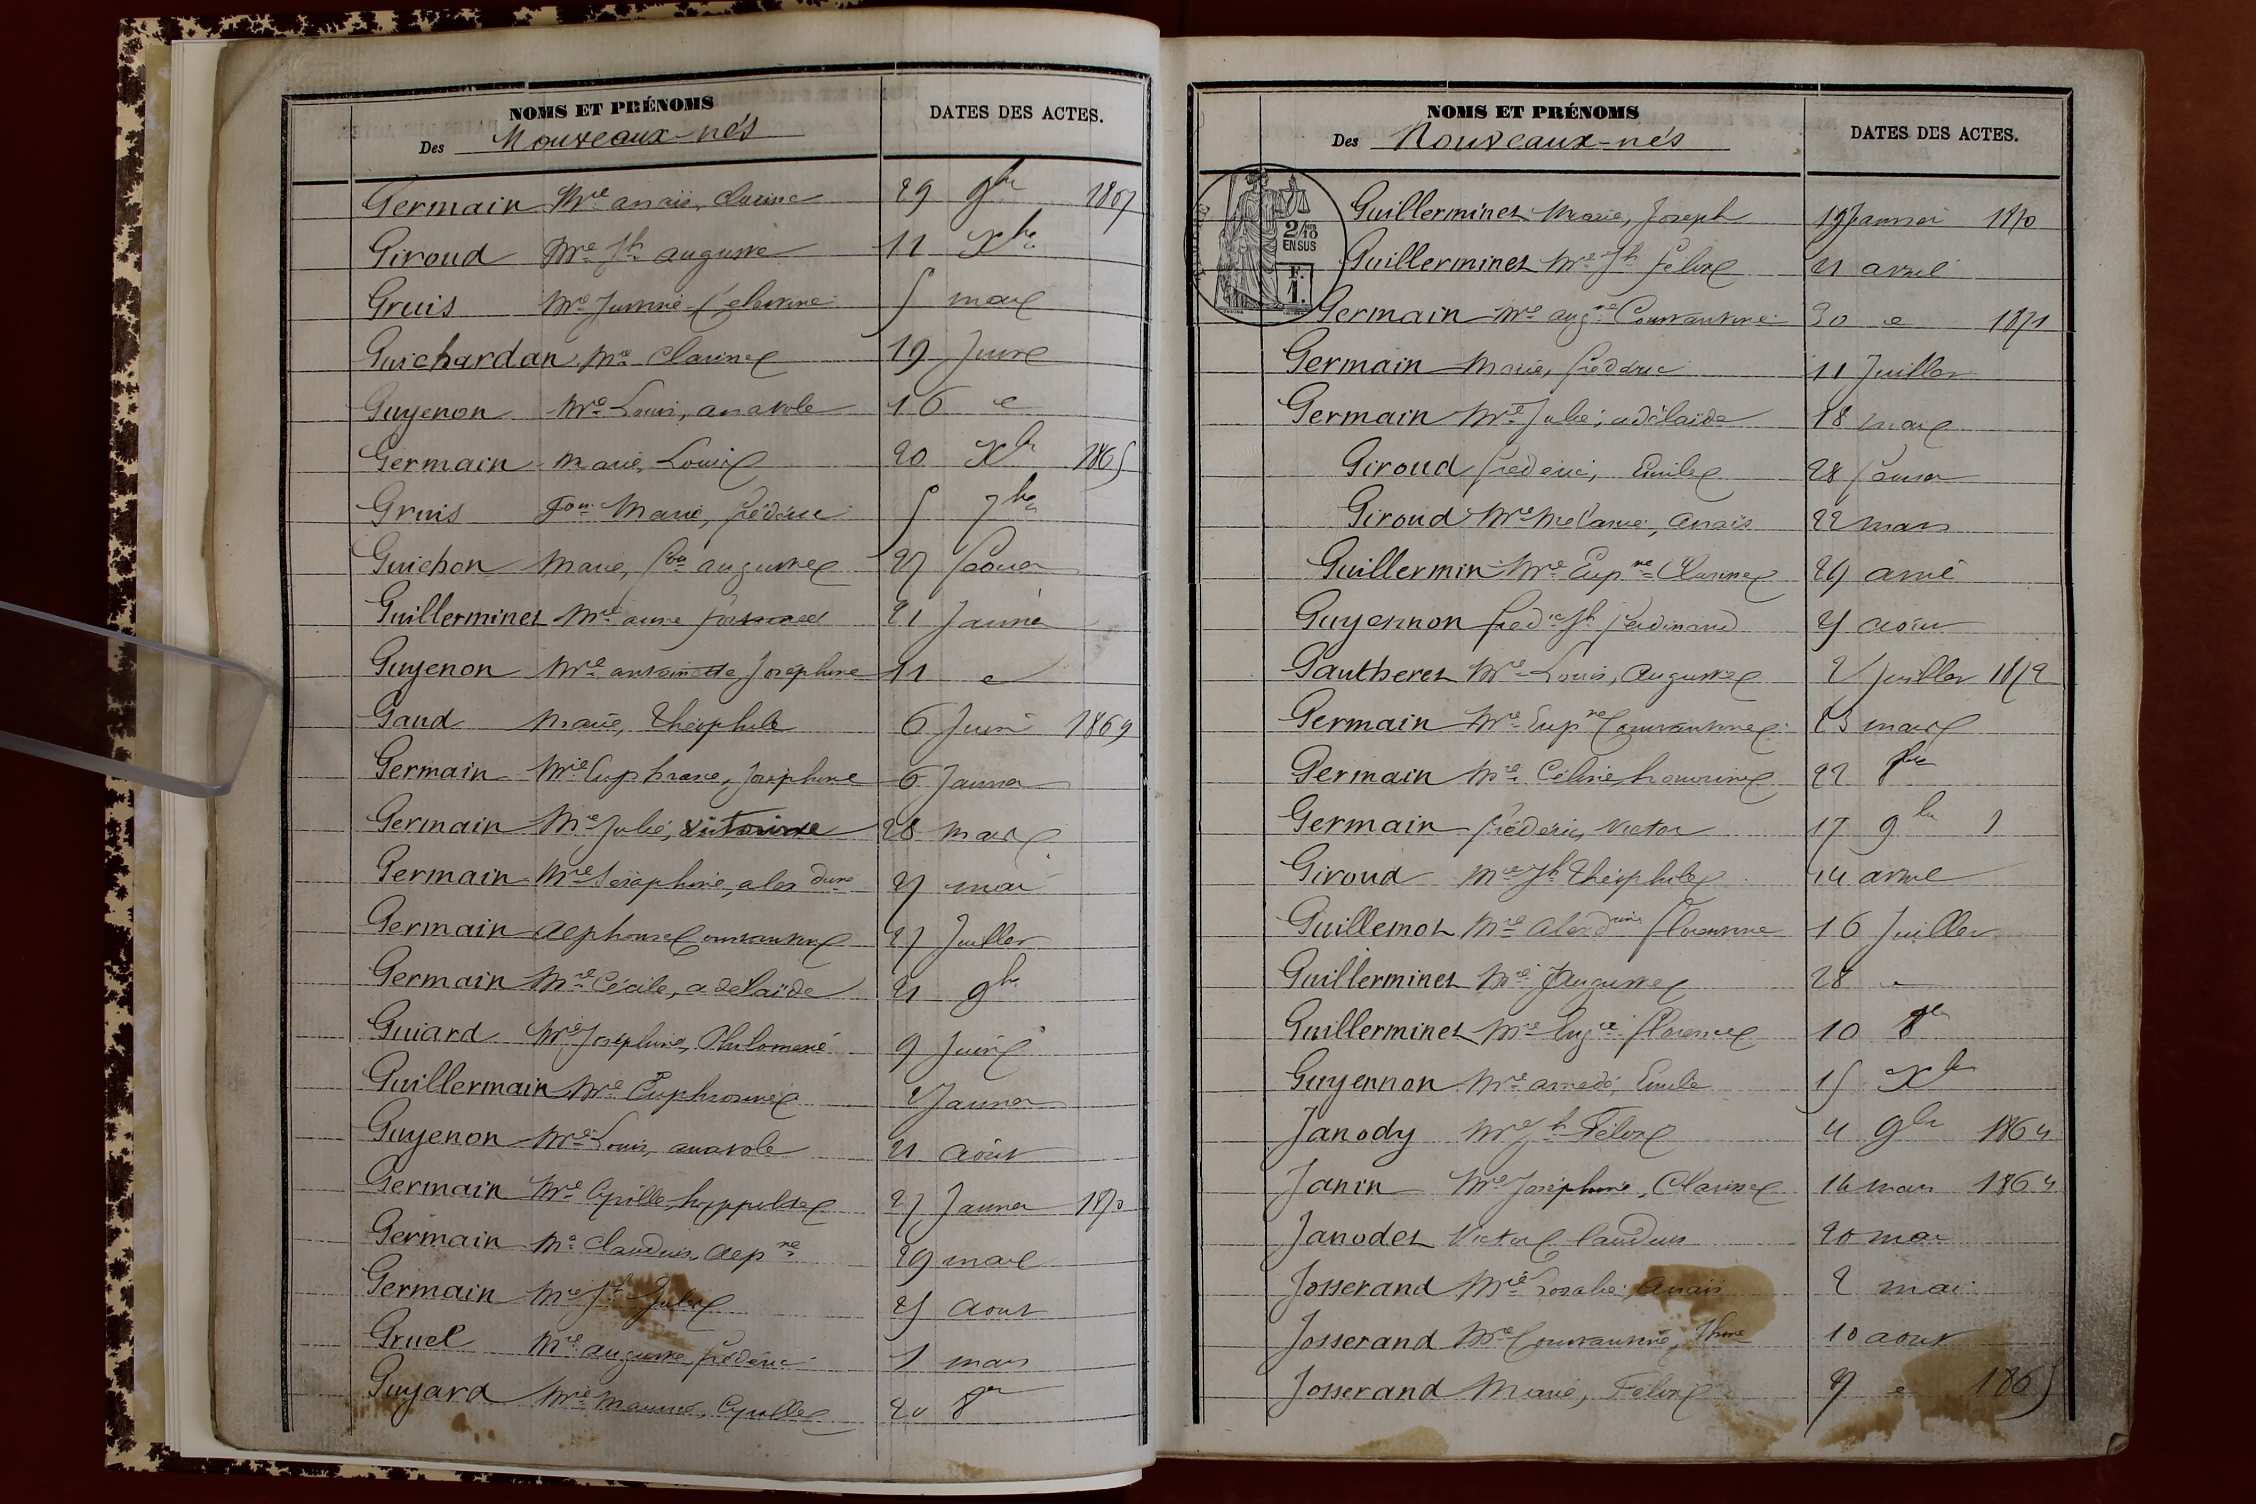 NOMS ET PRÉNOMS
Des Nouveaux-nés
DATES DES ACTES.
Germain Mie anaïs, Clarisse 29 9bre 1867
Giroud Mie Jh auguste 11 Xbre
Gruis 5 mars
Guichardan Mie Clarisse 19 Juin
Guyenon Mie Louis, anatole 16
Germain Marie, Louise 20 Xbre
Gruis Fois Marie, frédéric 5 7bre
Guichon Marie, auguste 27 février
Guillerminet Mie anne 21 Janvier
Guyenon Mie antoinette Joséphine 11
Gaud Marie, Théophile 6 Juin 1869
Germain Mie Euphrasie, Joséphine 6 Janvier
Germain Mie Julie, victorine 28 mars
Germain Mie Séraphine, alexdrine 27 mai
Germain alphonse Constantin 27 Juillet
Germain Mie Cécile, adélaïde 21 9bre
Guiard Mie Joséphine, Philomène 9 Juin
Guillermain Mie Euphrosine 2 Janvier
Guyenon Mie Louis, anatole 21 août
Germain Mie Cyrille, hyppolite 27 Janvier 1870
Germain Me Claudius, alpse 29 mars
Germain Mie Jh Jules 25 aout
Gruel Mie auguste frédéric 1 mars
Guyard Mie Maurice, Cyrille 20 8bre
NOMS ET PRÉNOMS
Des Nouveaux-nés
DATES DES ACTES.
2/10 EN SUS
F. 1.
Guillerminet Marie, Joseph 19 Janvier 1870
Guillerminet Mie Jh félix 21 avril
Germain Mie augne Constantine 30 1871
Germain Marie, frédéric 11 Juillet
Germain Mie Julie, adélaïde 18 mars
Giroud frédéric, Emile 28 février
Giroud Mie Mélanie, anaïs 22 mars
Guillermin Mie Clarisse 29 avril
Guyennon fredic Jh ferdinand 25 août
Gautheret Mie Louis, auguste 2 Juillet 1872
Germain Mie Constantine 13 mars
Germain Mie Céline, honorine 22 8bre
Germain frédéric, Victor 17 9bre
Giroud Mie Jh Théophile 14 avril
Guillemot Mie alexdrine florentine 16 Juillet
Guillerminet Mie auguste 28
Guillerminet Mie Eugie florence 10 8bre
Guyennon Mie amédé, Emile 15 Xbre
Janody Mie Jh Félix 4 9bre 1864
Janin Mie Joséphine, Clarisse 14 mars 1864
Janodet Victor Claudius 20 mai
Josserand Mie Rosalie anaïs 2 mai
Josserand Mie Constantine, 10 aout
Josserand Marie, Félix 1865